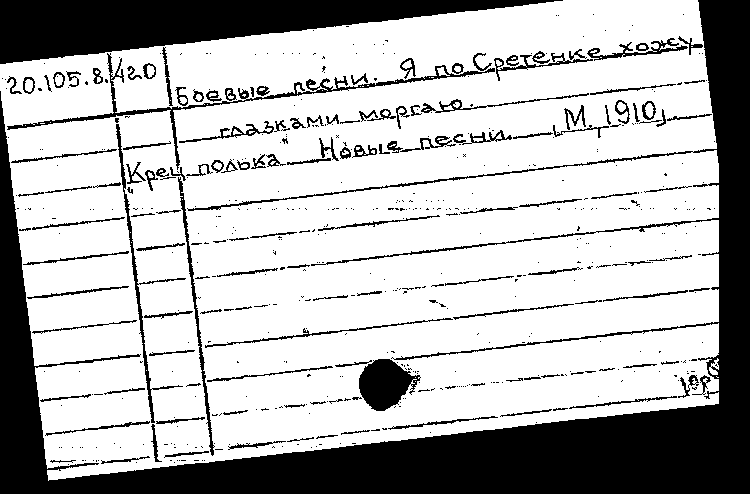 20.105.8./420
Боевые песни. Я по Сретенке хожу
глазками моргаю.
"Крец полька" Новые песни. [М, 1910].